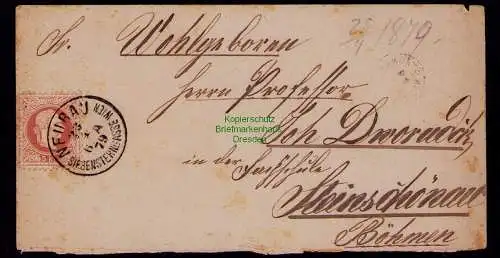 25/4 1879.
Sr. Wohlgeboren
Herrn Professor
Joh. Dworaček
in der Fachschule
Steinschönau
Böhmen
NEUBAU
SIEBENSTERNGASSE WIEN
79
Kopierschutz
Briefmarkenhaus
Dresden